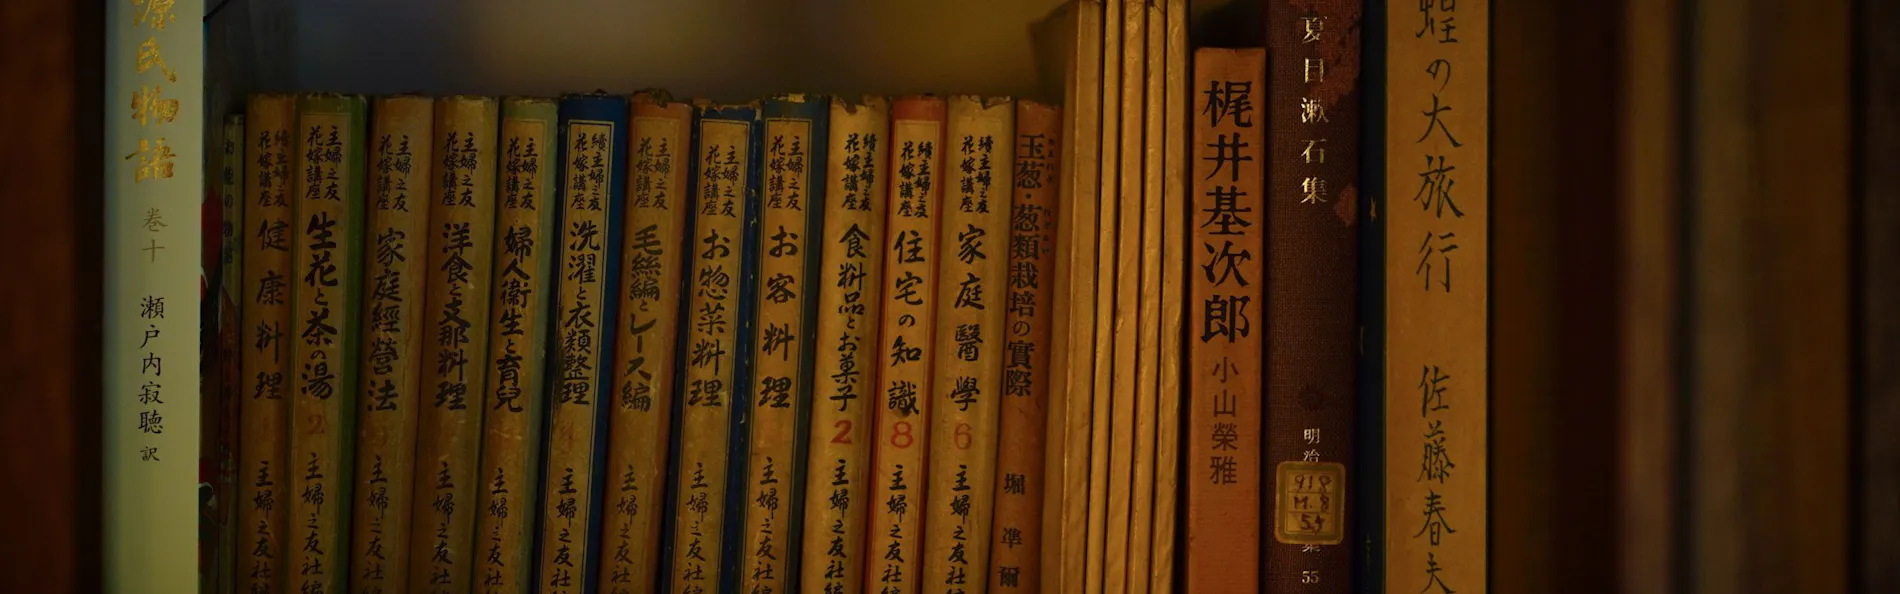 源氏物語 巻十 瀬戸内寂聴 訳
續主婦之友 花嫁講座 健康料理 主婦之友社編
主婦之友 花嫁講座 生花と茶の湯 2 主婦之友社編
主婦之友 花嫁講座 家庭經營法 主婦之友
主婦之友 花嫁講座 洋食と支那料理 主婦之友社
主婦之友 花嫁講座 婦人衞生と育兒 主婦之友社
續主婦之友 花嫁講座 洗濯と衣類整理 4 主婦之友社編
主婦之友 花嫁講座 毛絲編とレース編 主婦之友社
主婦之友 花嫁講座 お惣菜料理 主婦之友社
主婦之友 花嫁講座 お客料理 主婦之友社編
續主婦之友 花嫁講座 食料品とお菓子 2 主婦之友社編
續主婦之友 花嫁講座 住宅の知識 8 主婦之友社編
續主婦之友 花嫁講座 家庭醫學 6 主婦之友社編
玉葱・葱類栽培の實際 堀準爾
梶井基次郎 小山榮雅
夏目漱石集 明治 918 M.8 55 集 55
蝗の大旅行 佐藤春夫